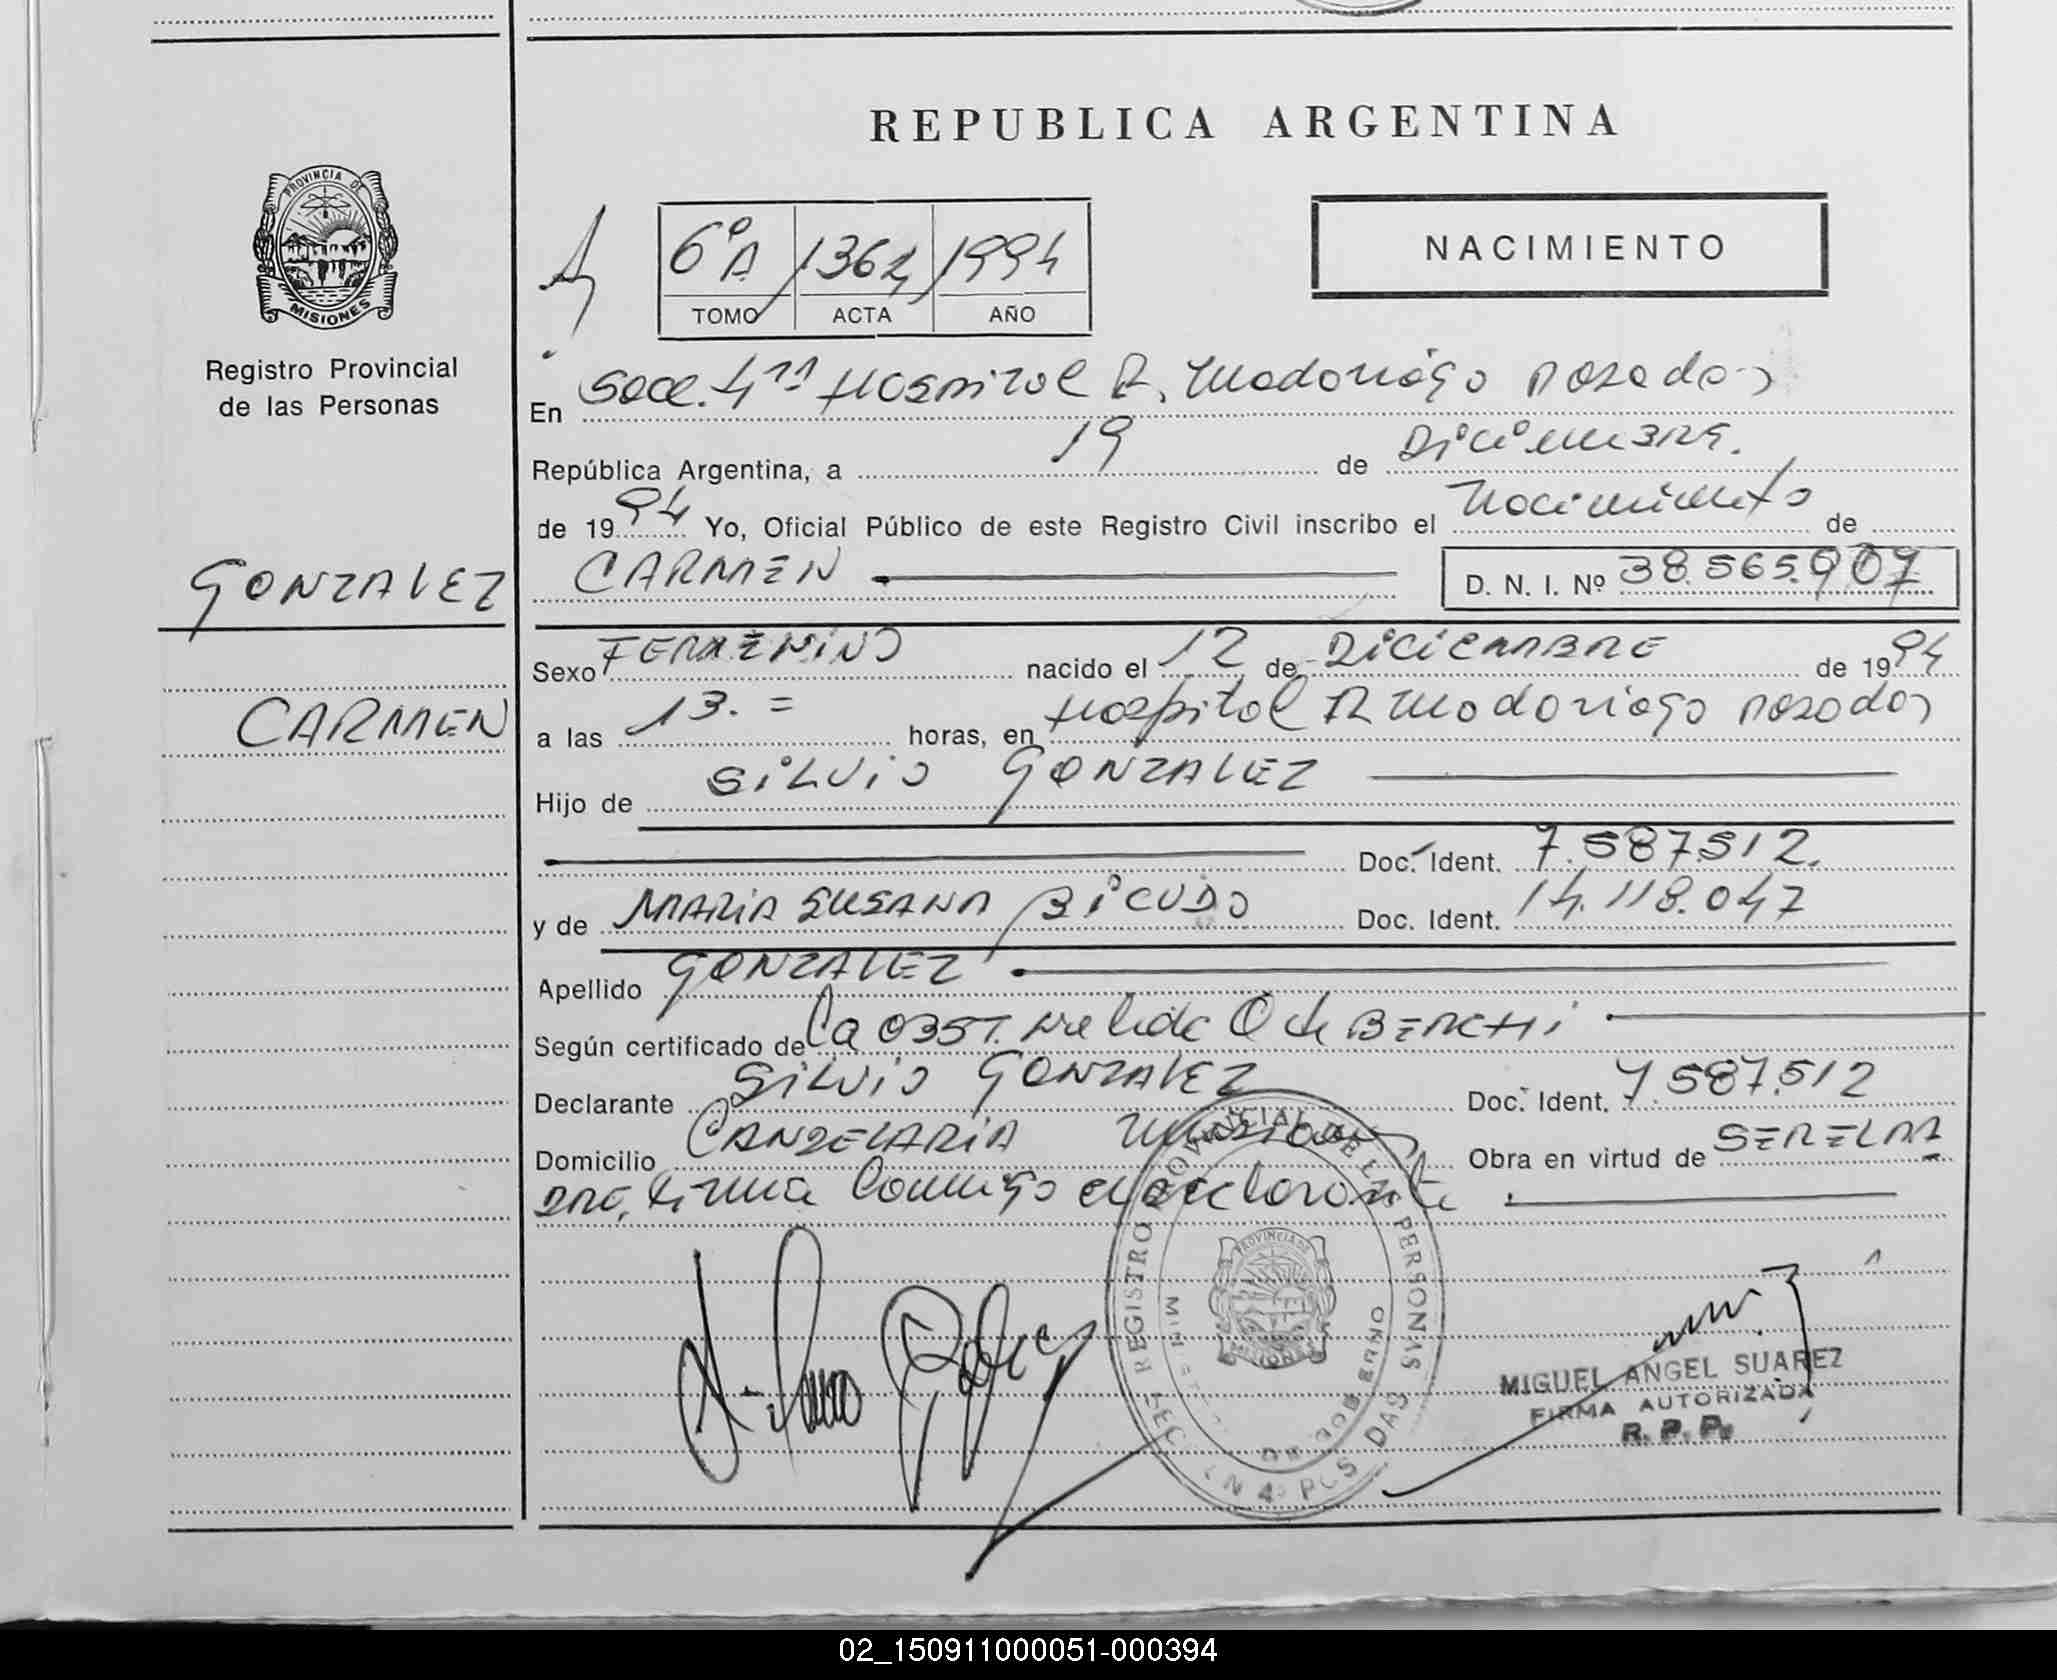 REPUBLICA ARGENTINA
PROVINCIA DE
MISIONES
Registro Provincial
de las Personas
6ºA 1364 1994
TOMO ACTA AÑO
NACIMIENTO
En Secc. 4ta Hospital R. Madariaga Posadas
República Argentina, a 19 de Diciembre.
de 1994 Yo, Oficial Público de este Registro Civil inscribo el Nacimiento de
GONZALEZ
CARMEN
CARMEN D. N. I. Nº 38.565.907
Sexo FEMENINO nacido el 12 de DICIEMBRE de 1994
a las 13. = horas, en Hospital R Madariaga Posadas
Hijo de SILVIO GONZALEZ
Doc. Ident. 7.587.512.
y de MARIA SUSANA BICUDO Doc. Ident. 14.118.047
Apellido GONZALEZ
Según certificado de la OBST. Nelida O de BERCHI
Declarante SILVIO GONZALEZ Doc. Ident. 7.587.512
Domicilio CANDELARIA Misiones Obra en virtud de SER EL PA
DRE, Firma Conmigo el declarante
REGISTRO PROVINCIAL DE LAS PERSONAS
PROVINCIA DE
MISIONES
MINISTERIO DE GOBIERNO
SECCION 4ª POSADAS
MIGUEL ANGEL SUAREZ
FIRMA AUTORIZADA
R. P. P.
02_150911000051-000394